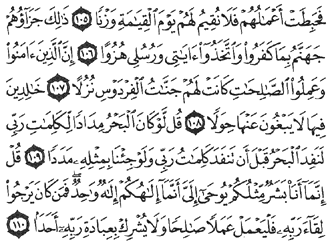 فَحَبِطَتْ أَعْمَالُهُمْ فَلَا نُقِيمُ لَهُمْ يَوْمَ الْقِيَامَةِ وَزْنًا ١٠٥ ذَٰلِكَ جَزَاؤُهُمْ
جَهَنَّمُ بِمَا كَفَرُوا وَاتَّخَذُوا آيَاتِي وَرُسُلِي هُزُوًا ١٠٦ إِنَّ الَّذِينَ آمَنُوا
وَعَمِلُوا الصَّالِحَاتِ كَانَتْ لَهُمْ جَنَّاتُ الْفِرْدَوْسِ نُزُلًا ١٠٧ خَالِدِينَ
فِيهَا لَا يَبْغُونَ عَنْهَا حِوَلًا ١٠٨ قُل لَّوْ كَانَ الْبَحْرُ مِدَادًا لِّكَلِمَاتِ رَبِّي
لَنَفِدَ الْبَحْرُ قَبْلَ أَن تَنفَدَ كَلِمَاتُ رَبِّي وَلَوْ جِئْنَا بِمِثْلِهِ مَدَدًا ١٠٩ قُلْ
إِنَّمَا أَنَا بَشَرٌ مِّثْلُكُمْ يُوحَىٰ إِلَيَّ أَنَّمَا إِلَٰهُكُمْ إِلَٰهٌ وَاحِدٌ ۖ فَمَن كَانَ يَرْجُوا
لِقَاءَ رَبِّهِ فَلْيَعْمَلْ عَمَلًا صَالِحًا وَلَا يُشْرِكْ بِعِبَادَةِ رَبِّهِ أَحَدًا ١١٠